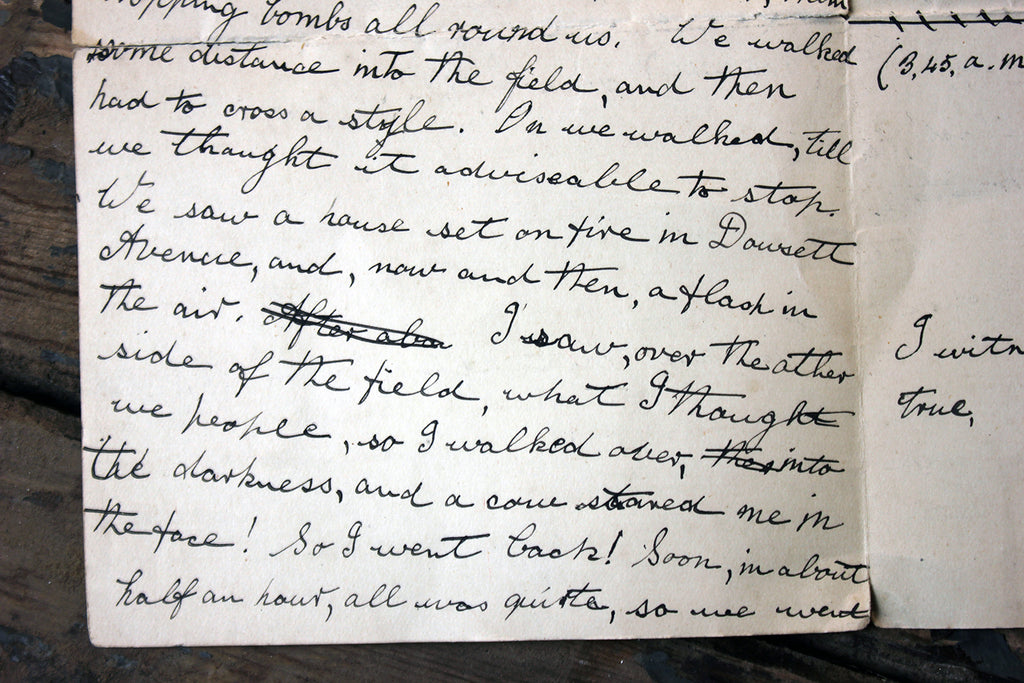 dropping bombs all round us. We walked
some distance into the field, and then
had to cross a style. On we walked, till
we thought it adviseable to stop.
We saw a house set on fire in Dowsett
Avenue, and, now and then, a flash in
the air. After abou I saw, over the other
side of the field, what I thought
we people, so I walked over, the into
the darkness, and a cow stared me in
the face! So I went back! Soon, in about
half an hour, all was quite, so we went
(3,45, a.m
I witn
true,